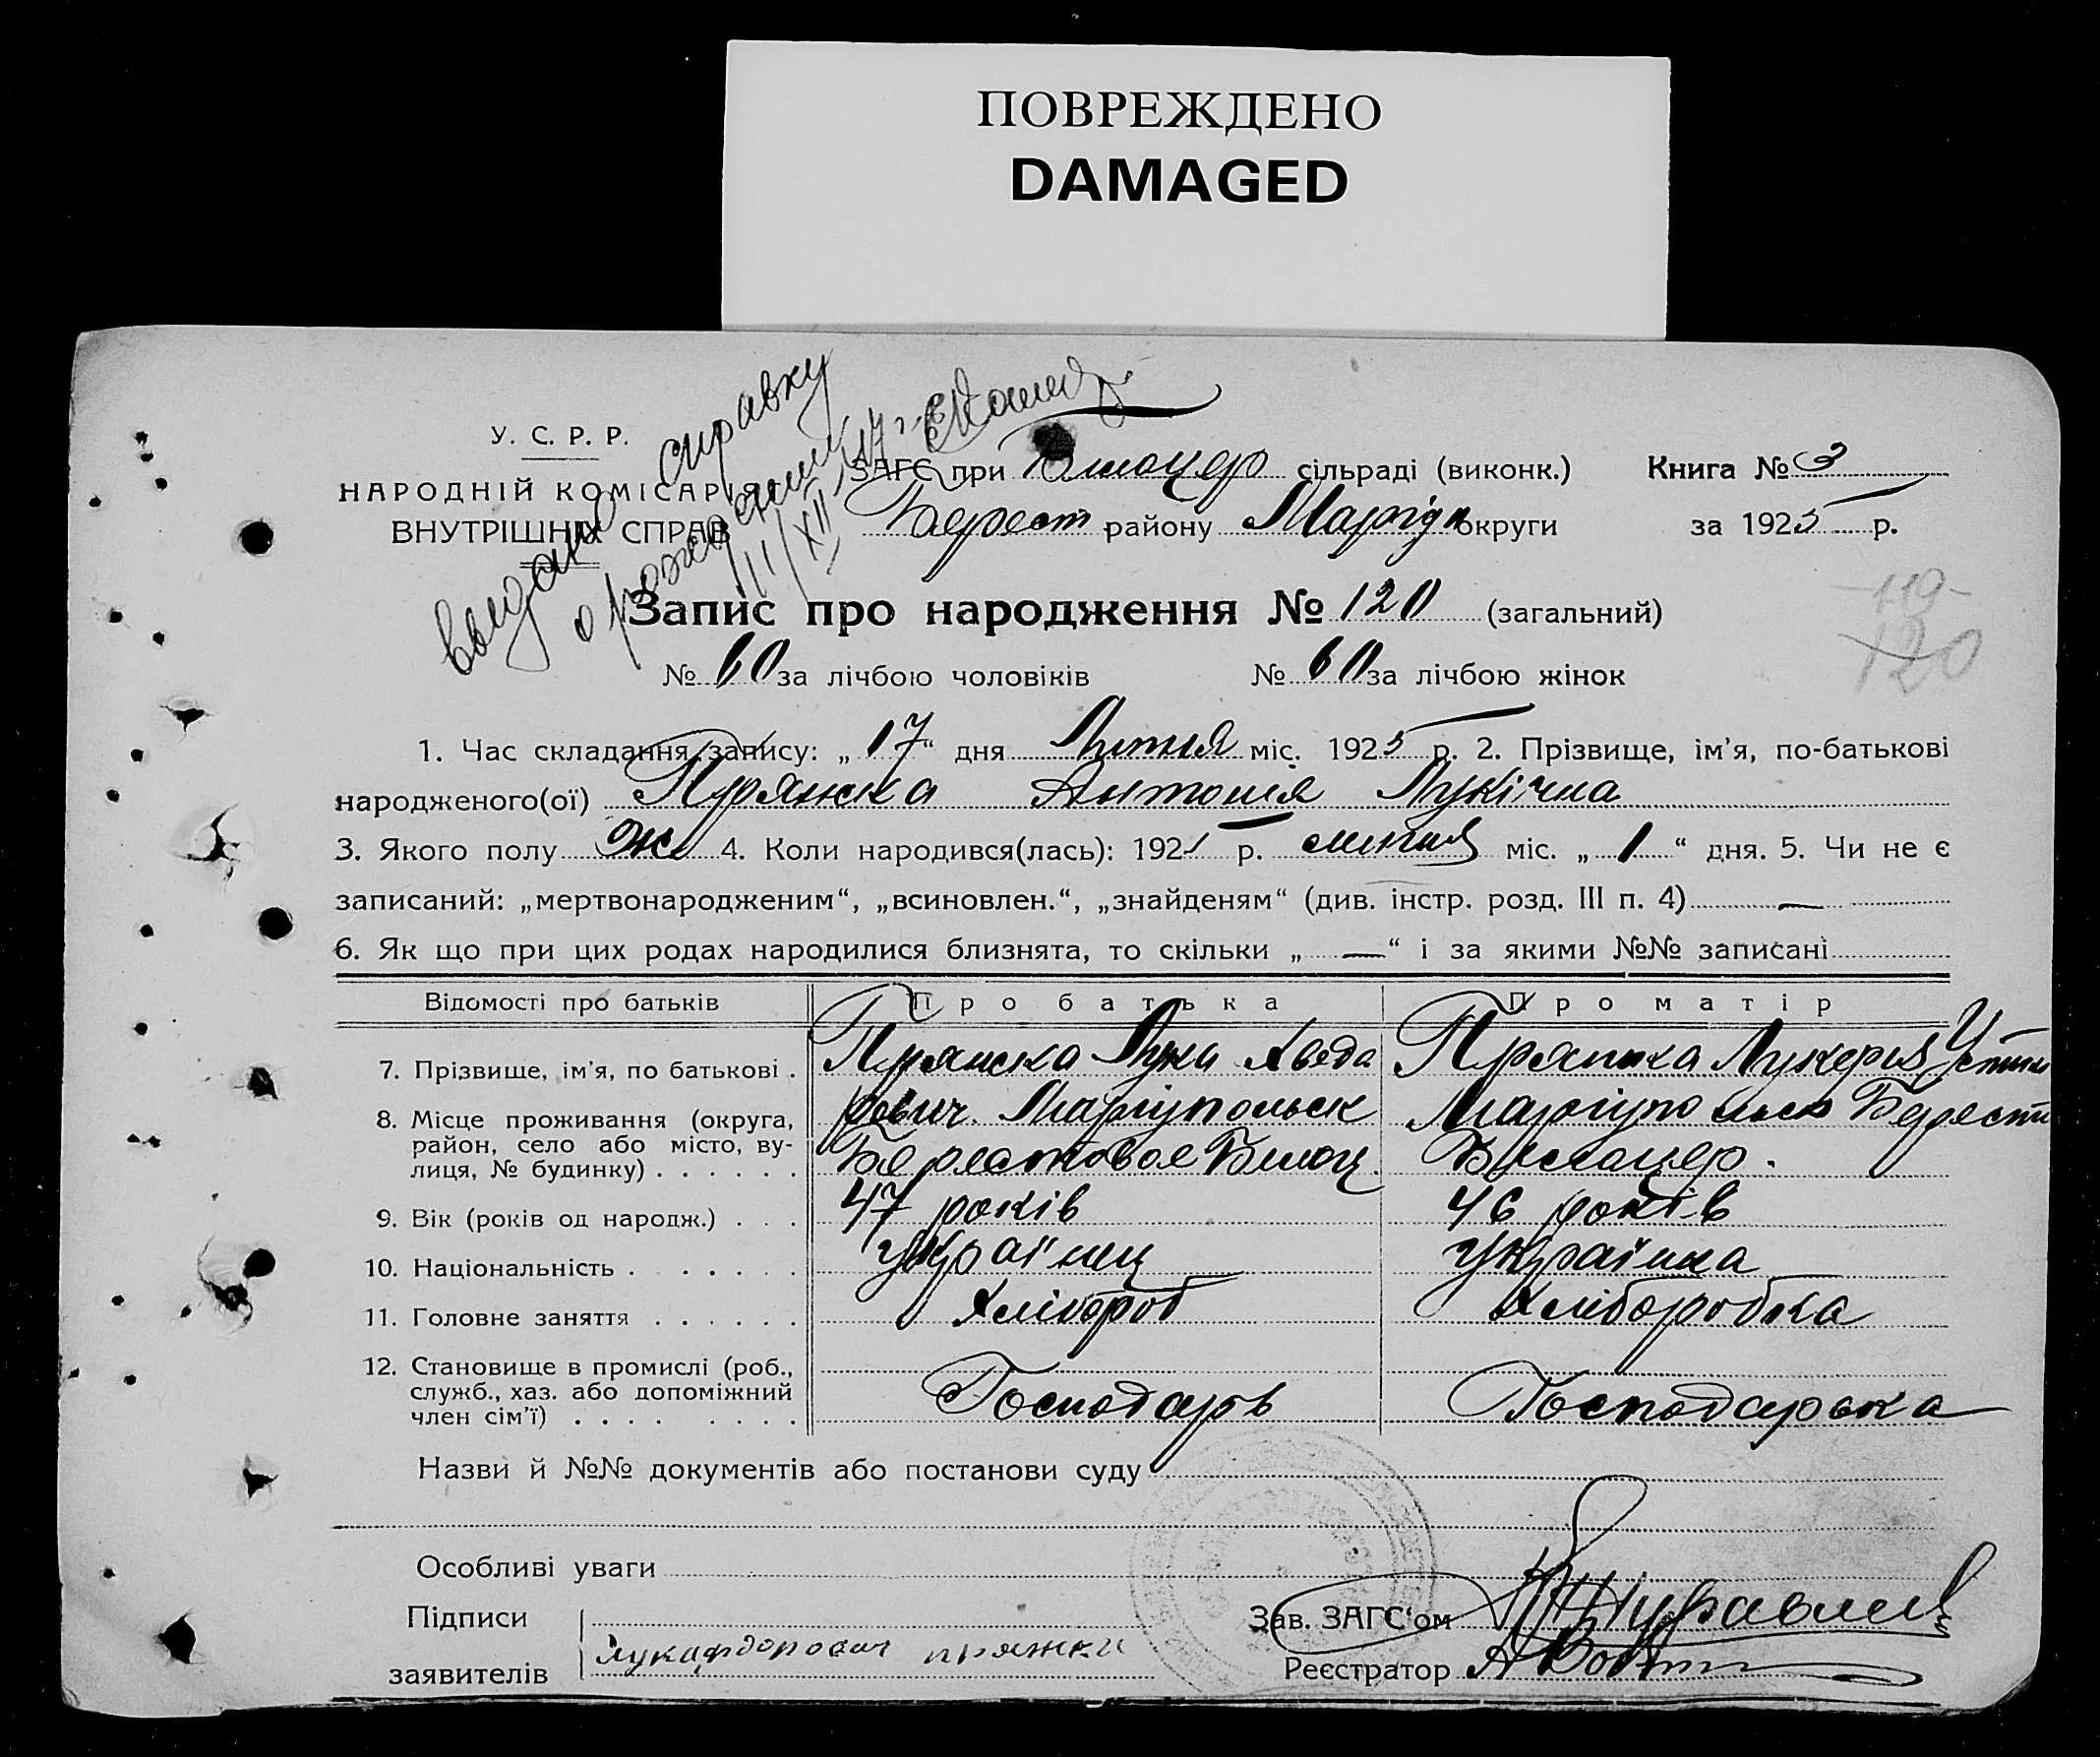 ПОВРЕЖДЕНО
DAMAGED
У. С. Р. Р.
НАРОДНІЙ КОМІСАРІЯТ
ВНУТРІШНІХ СПРАВ
справку
о рождении
11/XII
ЗАГС при сільраді (виконк.) Книга № 3
Берест району Маріуп округи за 1925 р.
Запис про народження № 120 (загальний)
-119-
120
№ 60 за лічбою чоловіків № 60 за лічбою жінок
1. Час складання запису: „17“ дня Липня міс. 1925 р. 2. Прізвище, ім’я, по-батькові
народженого(ої) Пряжка Антонія Лукічна
3. Якого полу ж 4. Коли народився(лась): 192 р. липня міс. „1“ дня. 5. Чи не є
записаний: „мертвонародженим“, „всиновлен.“, „знайденям“ (див. інстр. розд. III п. 4) —
6. Як що при цих родах народилися близнята, то скільки „—“ і за якими №№ записані
Відомості про батьків Про батька Про матір
7. Прізвище, ім’я, по батькові . Пряжка Лука Хведо Пряжка Лукерія Устин
8. Місце проживання (округа, рович. Маріупольск Маріупольск Берестов
район, село або місто, ву-
лиця, № будинку) . . . . . . Берестовое Билоц. Билоцер.
9. Вік (років од народж.) . . . 47 років 46 років
10. Національність . . . . . . Українец Українка
11. Головне заняття . . . . . . Хлібороб Хлібороб­ка
12. Становище в промислі (роб.,
служб., хаз. або допоміжний
член сім’ї) . . . . . . . . Господарь Господарька
Назви й №№ документів або постанови суду
Особливі уваги
Підписи Зав. ЗАГС‘ом
заявителів лука фдорович пряжка Реєстратор